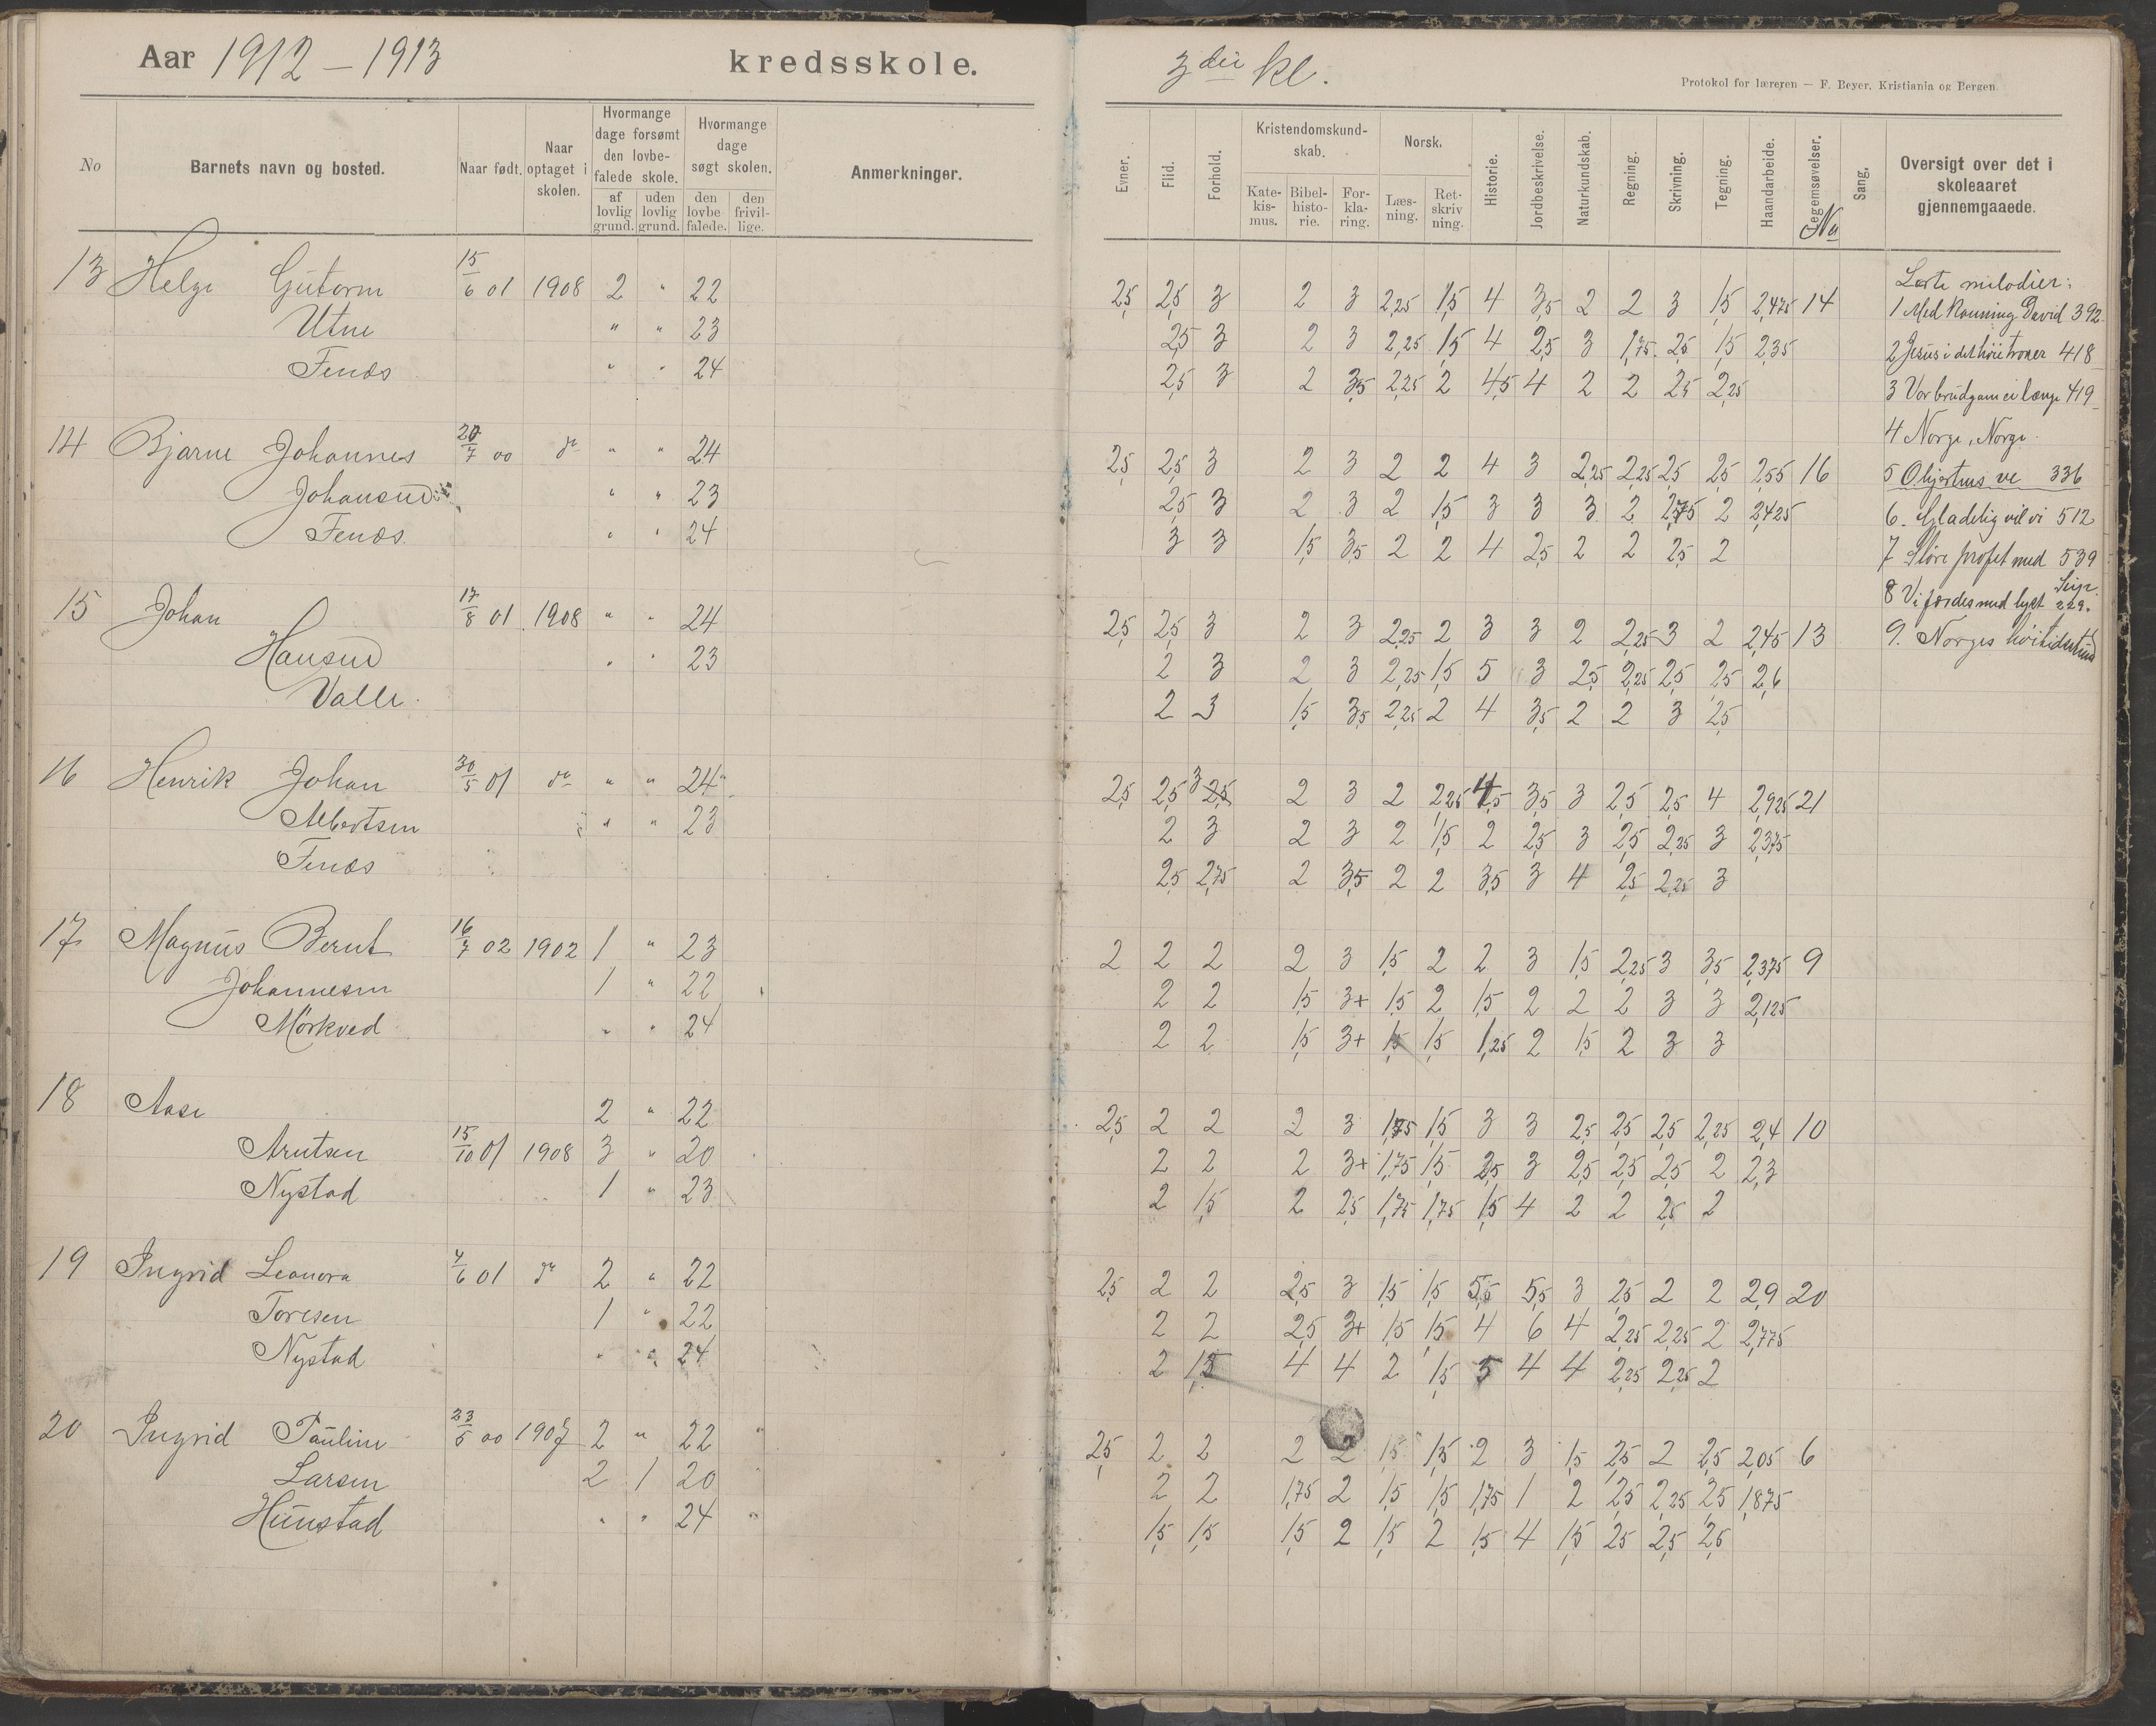 Aar 1912 – 1913 kredsskole.
No
Barnets navn og bosted.
Naar født.
Naar optaget i skolen.
Hvormange dage forsømt den lovbefalede skole.
af lovlig grund.
uden lovlig grund.
Hvormange dage søgt skolen.
den lovbefalede.
den frivillige.
Anmerkninger.
13 Helge Gutorm 15/6 01 1908 2 " 22
Utne " " 23
Fenes " " 24
14 Bjarne Johannes 20/7 00 do " " 24
Johansen " " 23
Fenes " " 24
15 Johan 17/8 01 1908 " " 24
Hansen " " 23
Valle
16 Henrik Johan 30/5 01 do " " 24
Albertsen " " 23
Fenes
17 Magnus Bernt 16/7 02 1902 1 " 23
Johannesen 1 " 22
Mørkved " " 24
18 Aase 2 " 22
Arntsen 15/10 01 1908 3 " 20
Nystad 1 " 23
19 Ingrid Leonora 4/6 01 do 2 " 22
Toresen 1 " 22
Nystad " " 24
20 Ingrid Pauline 23/5 00 1907 2 " 22 "
Larsen 2 1 20 "
Hunstad " " 24 "
3die kl.
Protokol for læreren — F. Beyer, Kristiania og Bergen.
Evner.
Flid.
Forhold.
Kristendomskundskab.
Katekismus.
Bibelhistorie.
Forklaring.
Norsk.
Læsning.
Retskrivning.
Historie.
Jordbeskrivelse.
Naturkundskab.
Regning.
Skrivning.
Tegning.
Haandarbeide.
Legemsøvelser.
No
Sang.
Oversigt over det i skoleaaret gjennemgaaede.
2,5 2,5 3 2 3 2,25 1,5 4 3,5 2 2 3 1,5 2,475 14
2,5 3 2 3 2,25 1,5 4 2,5 3 1,75 2,5 1,5 2,35
2,5 3 2 3,5 2,25 2 4,5 4 2 2 2,5 2,25
2,5 2,5 3 2 3 2 2 4 3 2,25 2,25 2,5 2,5 2,55 16
2,5 3 2 3 2 1,5 3 3 3 2 2,75 2 2,425
3 3 1,5 3,5 2 2 4 2,5 2 2 2,5 2
2,5 2,5 3 2 3 2,25 2 3 3 2 2,25 3 2 2,45 13
2 3 2 3 2,25 1,5 5 3 2,5 2,25 2,5 2,5 2,6
2 3 1,5 3,5 2,25 2 4 3,5 2 2 3 2,5
2,5 2,5 3 2,5 2 3 2 2,25 4,5 3,5 3 2,5 2,5 4 2,925 21
2 3 2 3 2 1,5 2 2,5 3 2,5 2,25 3 2,375
2,5 2,75 2 3,5 2 2 3,5 3 4 2,5 2,25 3
2 2 2 2 3 1,5 2 2 3 1,5 2,25 3 3,5 2,375 9
2 2 1,5 3+ 1,5 2 1,5 2 2 2 3 3 2,125
2 2 1,5 3+ 1,5 1,5 1,25 2 1,5 2 3 3
2,5 2 2 2 3 1,75 1,5 3 3 2,5 2,5 2,5 2,25 2,4 10
2 2 2 3+ 1,75 1,5 2,5 3 2,5 2,5 2,5 2 2,3
2 1,5 2 2,5 1,75 1,75 1,5 4 2 2 2,5 2
2,5 2 2 2,5 3 1,5 1,5 5,5 5,5 3 2,5 2 2 2,9 20
2 2 2,5 3+ 1,5 1,5 4 6 4 2,25 2,25 2 2,775
2 1,5 4 4 2 1,5 5 4 4 2,25 2,25 2
2,5 2 2 2 2 1,5 1,5 2 3 1,5 2,5 2 2,5 2,05 6
2 2 1,75 2 1,5 1,5 1,75 1 2 2,5 2,25 2,5 1,875
1,5 1,5 1,5 2 1,5 2 1,5 4 1,5 2,5 2,5 2,5
Lærte melodier:
1 Med Konning David 392
2 Jesus i det høie troner 418
3 Vor brudgom ei længe 419
4 Norge, Norge
5 O hjertens ve 336
6. Gladelig vil vi 512
7 Store profet med 539
8 Vi færdes med lyst 229.
9. Norges høitidsstund